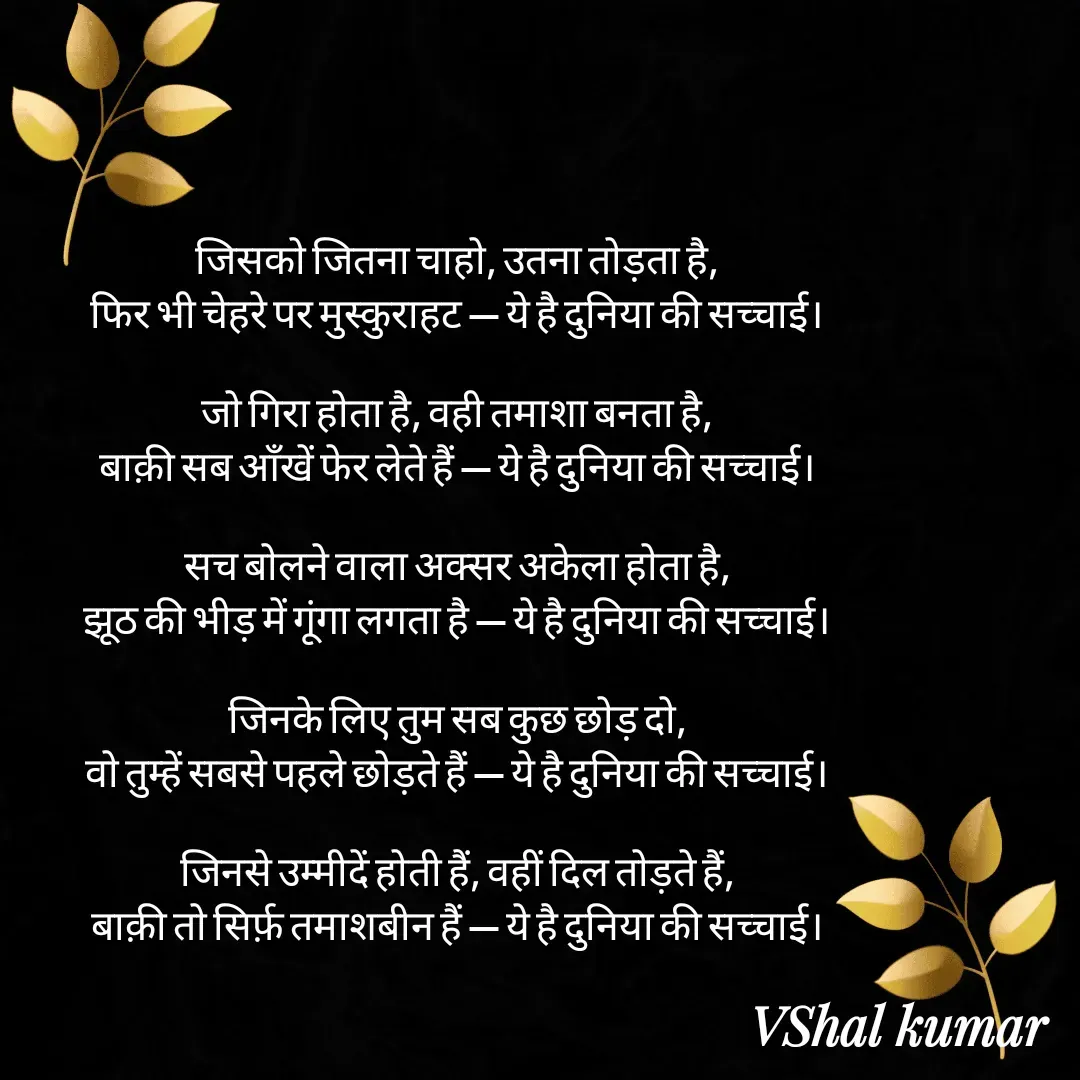 जिसको जितना चाहो, उतना तोड़ता है,
फिर भी चेहरे पर मुस्कुराहट — ये है दुनिया की सच्चाई।
जो गिरा होता है, वही तमाशा बनता है,
बाक़ी सब आँखें फेर लेते हैं — ये है दुनिया की सच्चाई।
सच बोलने वाला अक्सर अकेला होता है,
झूठ की भीड़ में गूंगा लगता है — ये है दुनिया की सच्चाई।
जिनके लिए तुम सब कुछ छोड़ दो,
वो तुम्हें सबसे पहले छोड़ते हैं — ये है दुनिया की सच्चाई।
जिनसे उम्मीदें होती हैं, वहीं दिल तोड़ते हैं,
बाक़ी तो सिर्फ़ तमाशबीन हैं — ये है दुनिया की सच्चाई।
VShal kumar